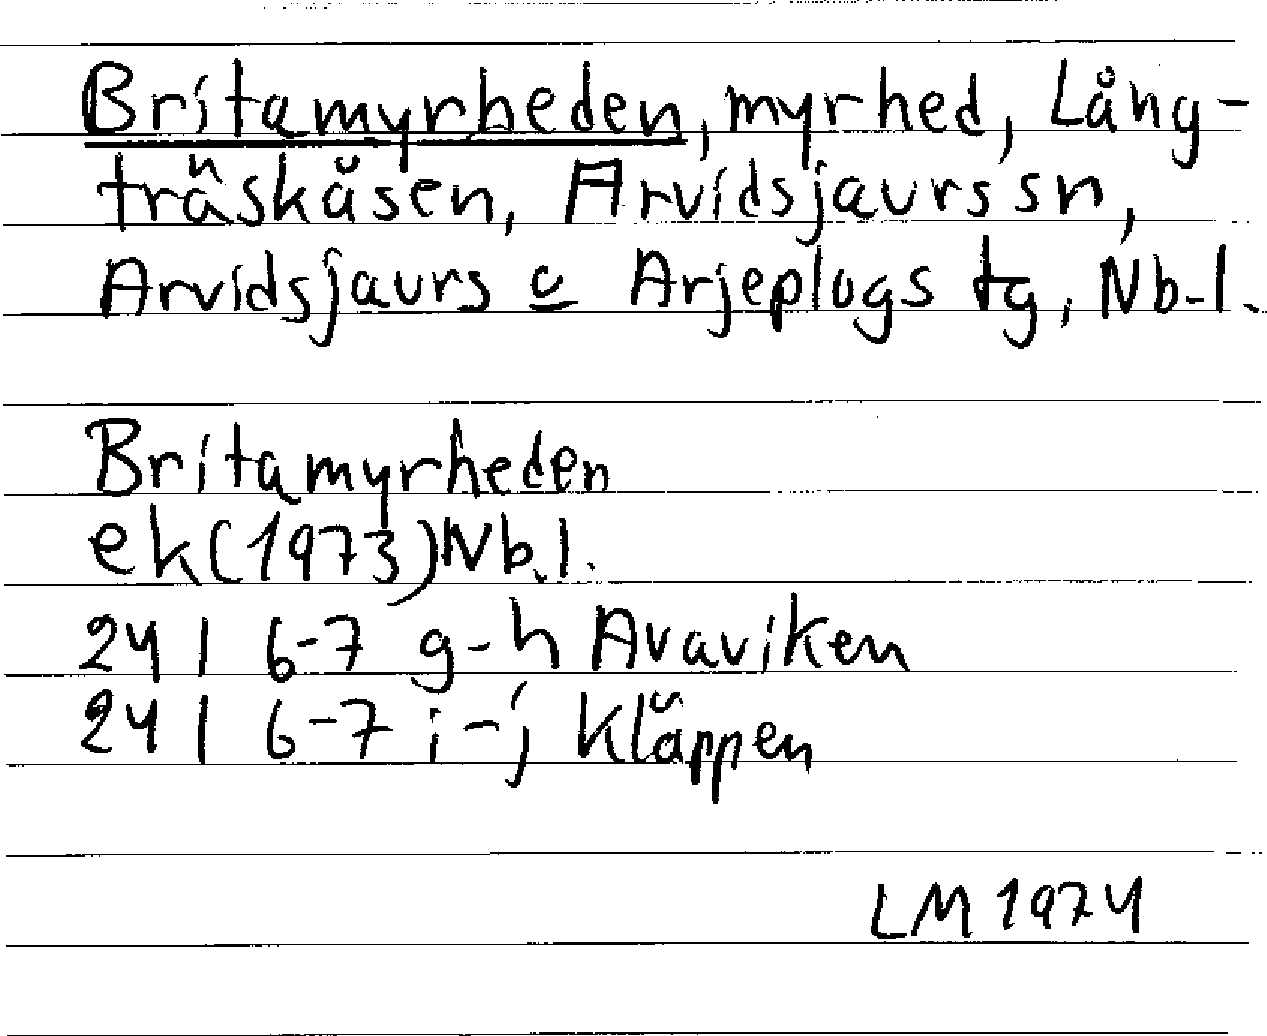 Britamyrheden, myrhed, Lång-
träskåsen, Arvidsjaurs sn,
Arvidsjaurs o Arjeplogs tg, Nb-l.
Britamyrheden
ek (1973) Nb.l.
24 I 6-7 g-h Avaviken
24 I 6-7 i-j Kläppen
LM 1974